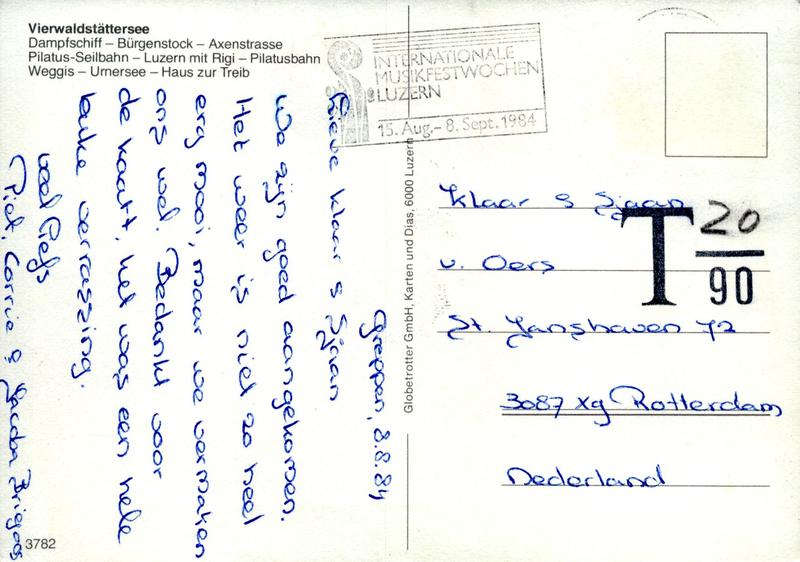 Vierwaldstättersee
Dampfschiff – Bürgenstock – Axenstrasse
Pilatus-Seilbahn – Luzern mit Rigi – Pilatusbahn
Weggis – Urnersee – Haus zur Treib
INTERNATIONALE
MUSIKFESTWOCHEN
LUZERN
15. Aug. – 8. Sept. 1984
Greppen, 8.8.84
Lieve Klaar & Sjaan
We zijn goed aangekomen.
Het weer is niet zo heel
erg mooi, maar we vermaken
ons wel. Bedankt voor
de kaart, het was een hele
leuke verrassing.
veel liefs
Piet, Corrie &
3782
Globetrotter GmbH, Karten und Dias, 6000 Luzern
Klaar & Sjaan
v. Oers
St. Janshaven 72
3087 xg Rotterdam
Nederland
T 20
90